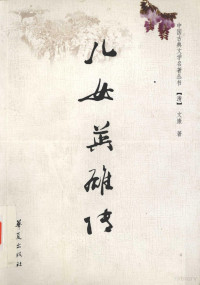 中国古典文学名著丛书 【清】 文康 著
儿女英雄传
华夏出版社